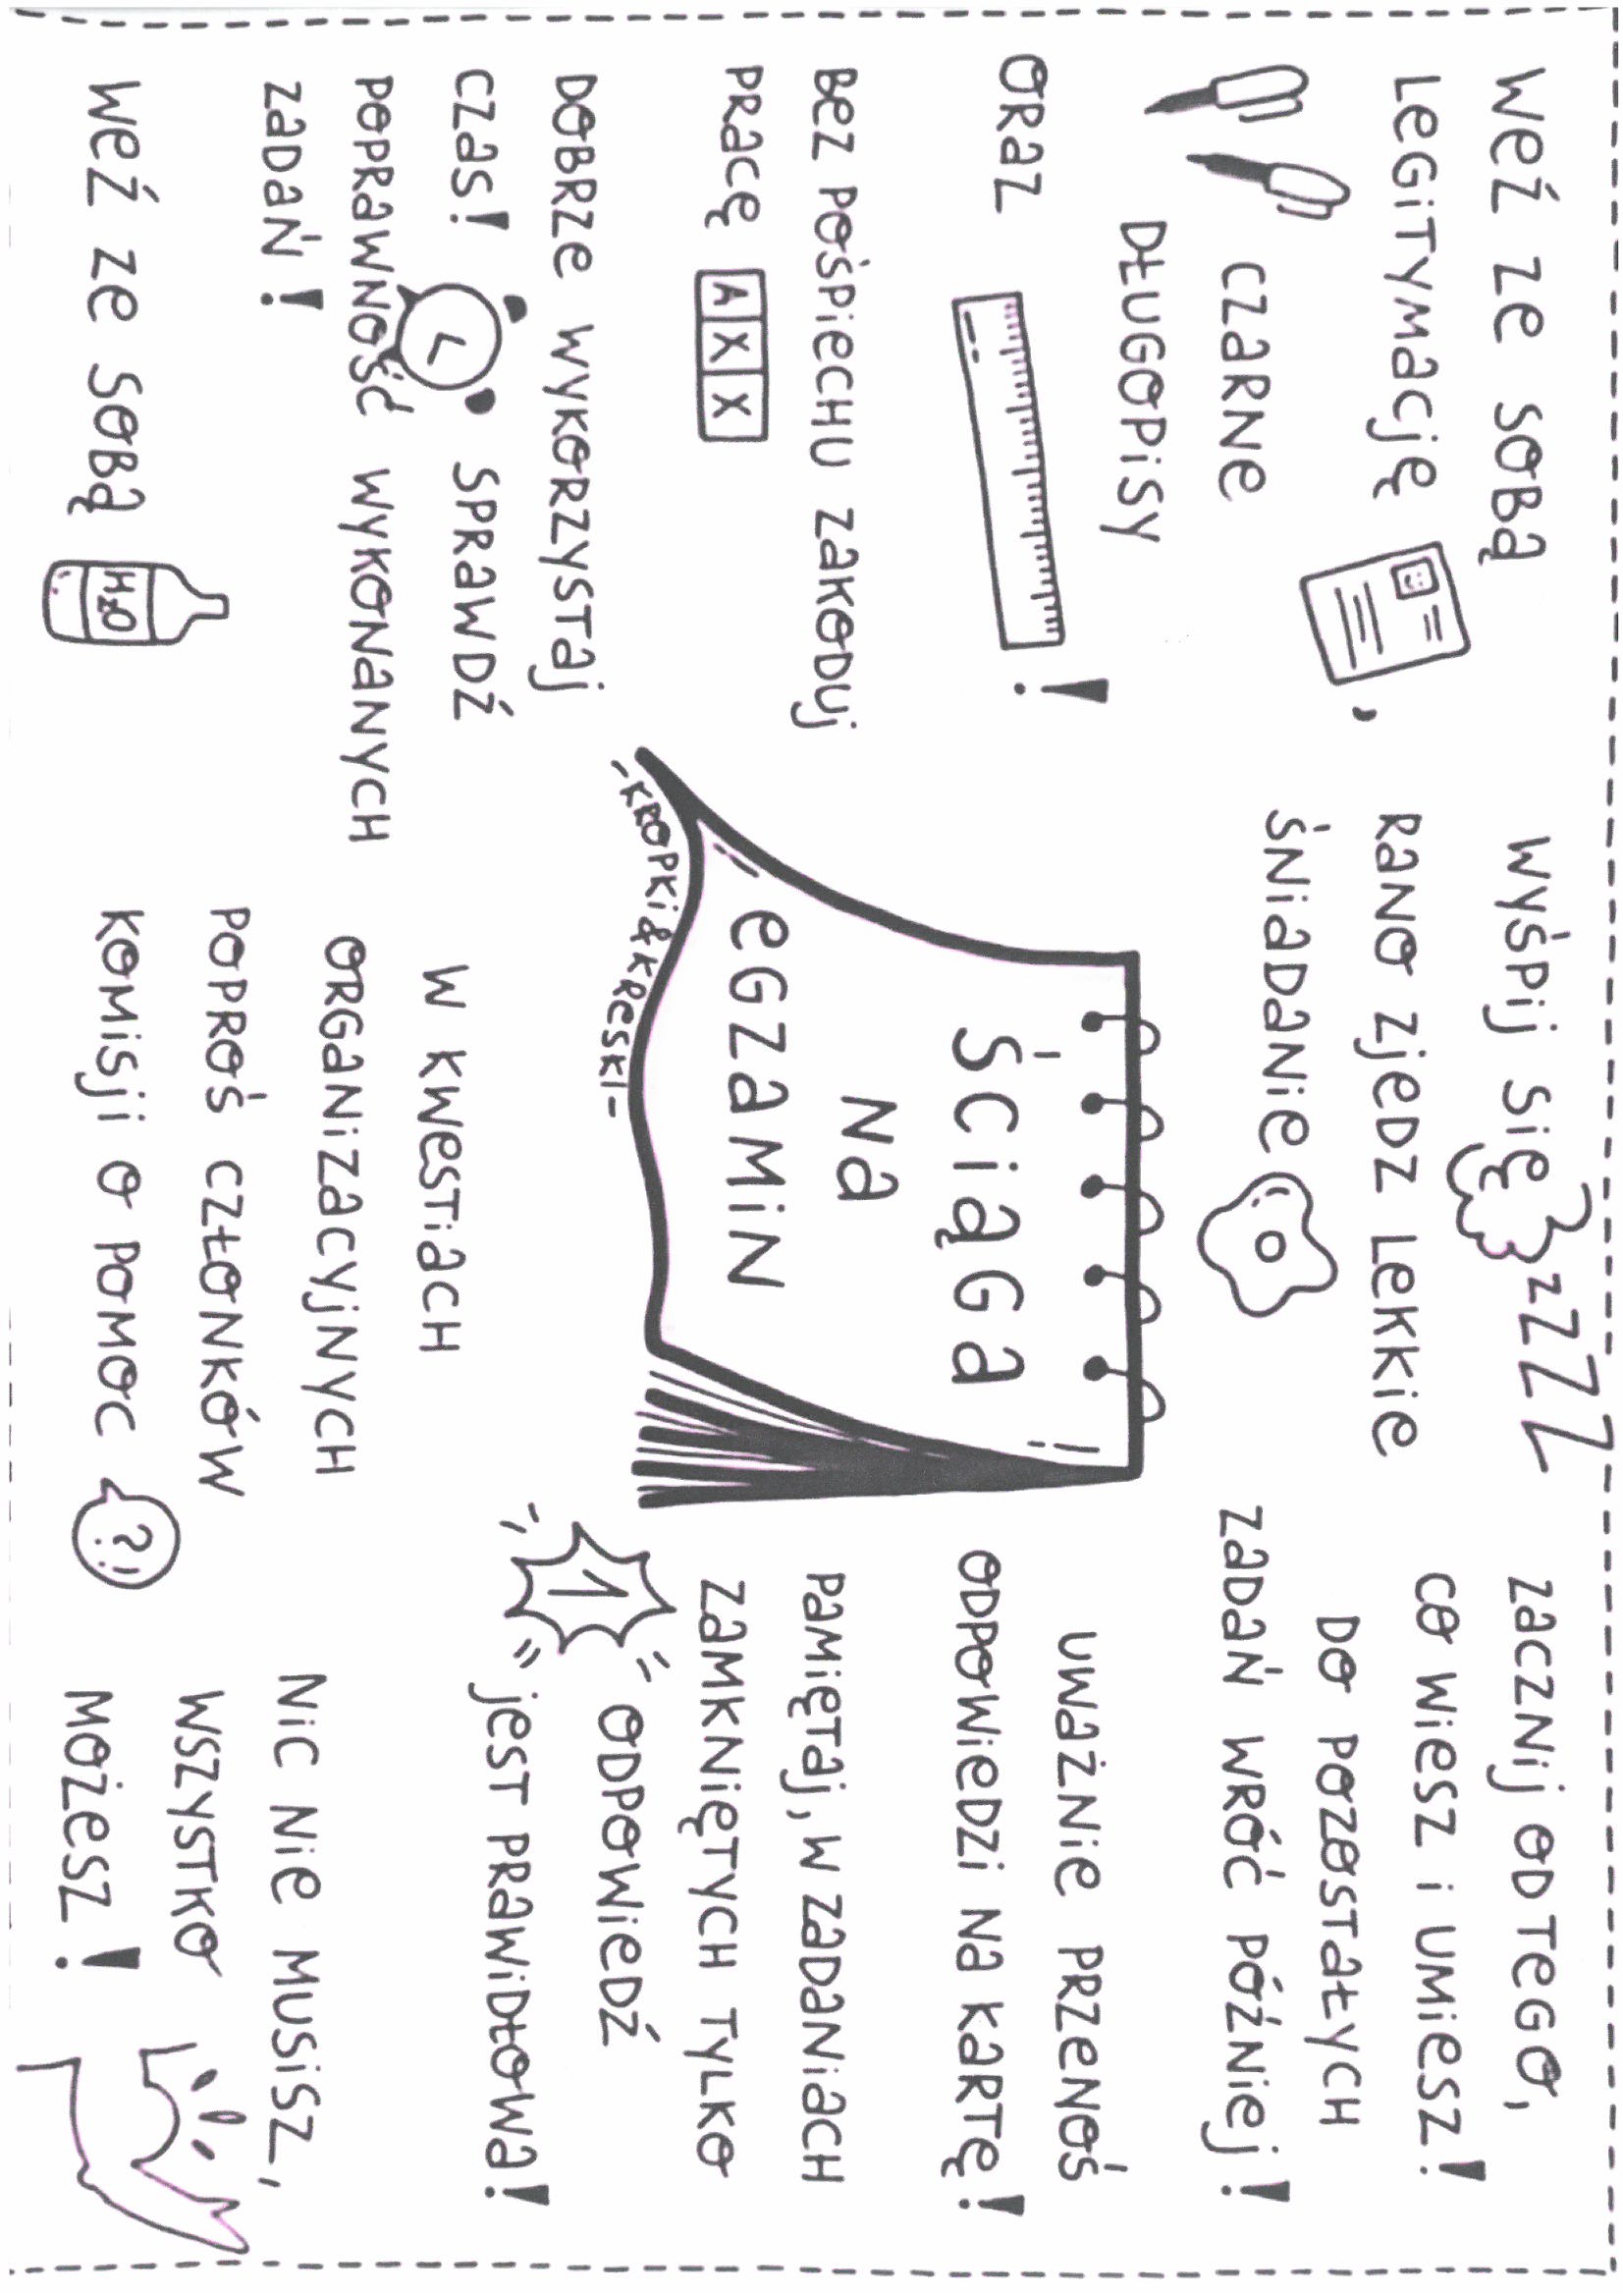 Weź ze sobą
legitymację
,
czarne
długopisy
oraz
!
Bez pośpiechu zakoduj
pracę A X X
Dobrze wykorzystaj
czas! sprawdź
poprawność wykonanych
zadań!
Weź ze sobą
H2O
Wyśpij się zzZZZ
Rano zjedz lekkie
śniadanie
Ściąga
na
egzamin
-Kropki & Kreski-
W kwestiach
organizacyjnych
poproś członków
komisji o pomoc ?!
Zacznij od tego,
co wiesz i umiesz!
Do pozostałych
zadań wróć później!
Uważnie przenoś
odpowiedzi na kartę!
Pamiętaj, w zadaniach
zamkniętych tylko
1 odpowiedź
jest prawidłowa!
Nic nie musisz,
wszystko
możesz!